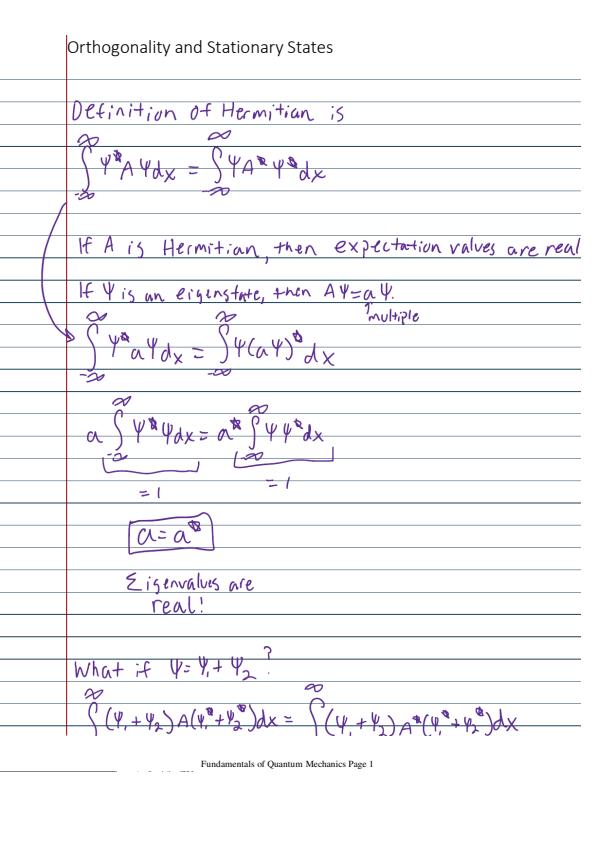 Orthogonality and Stationary States
Definition of Hermitian is
∫_{-∞}^{∞} Ψ* A Ψ dx = ∫_{-∞}^{∞} Ψ A* Ψ* dx
If A is Hermitian, then expectation values are real
If Ψ is an eigenstate, then AΨ = aΨ.
↑ multiple
∫_{-∞}^{∞} Ψ* a Ψ dx = ∫_{-∞}^{∞} Ψ (aΨ)* dx
a ∫_{-∞}^{∞} Ψ* Ψ dx = a* ∫_{-∞}^{∞} Ψ Ψ* dx
= 1 = 1
a = a*
Eigenvalues are
real!
What if Ψ = Ψ₁ + Ψ₂ ?
∫^{∞} (Ψ₁ + Ψ₂) A (Ψ₁* + Ψ₂*) dx = ∫^{∞} (Ψ₁ + Ψ₂) A* (Ψ₁* + Ψ₂*) dx
Fundamentals of Quantum Mechanics Page 1